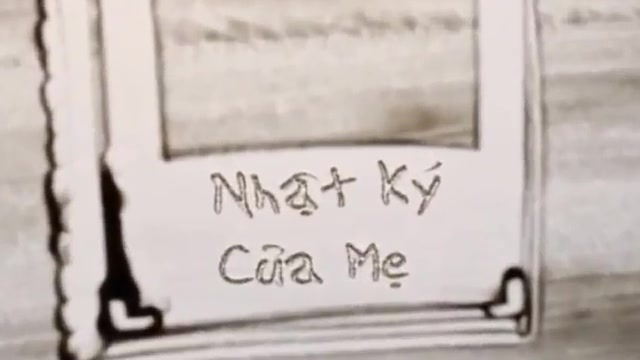 Nhật Ký
Của Mẹ